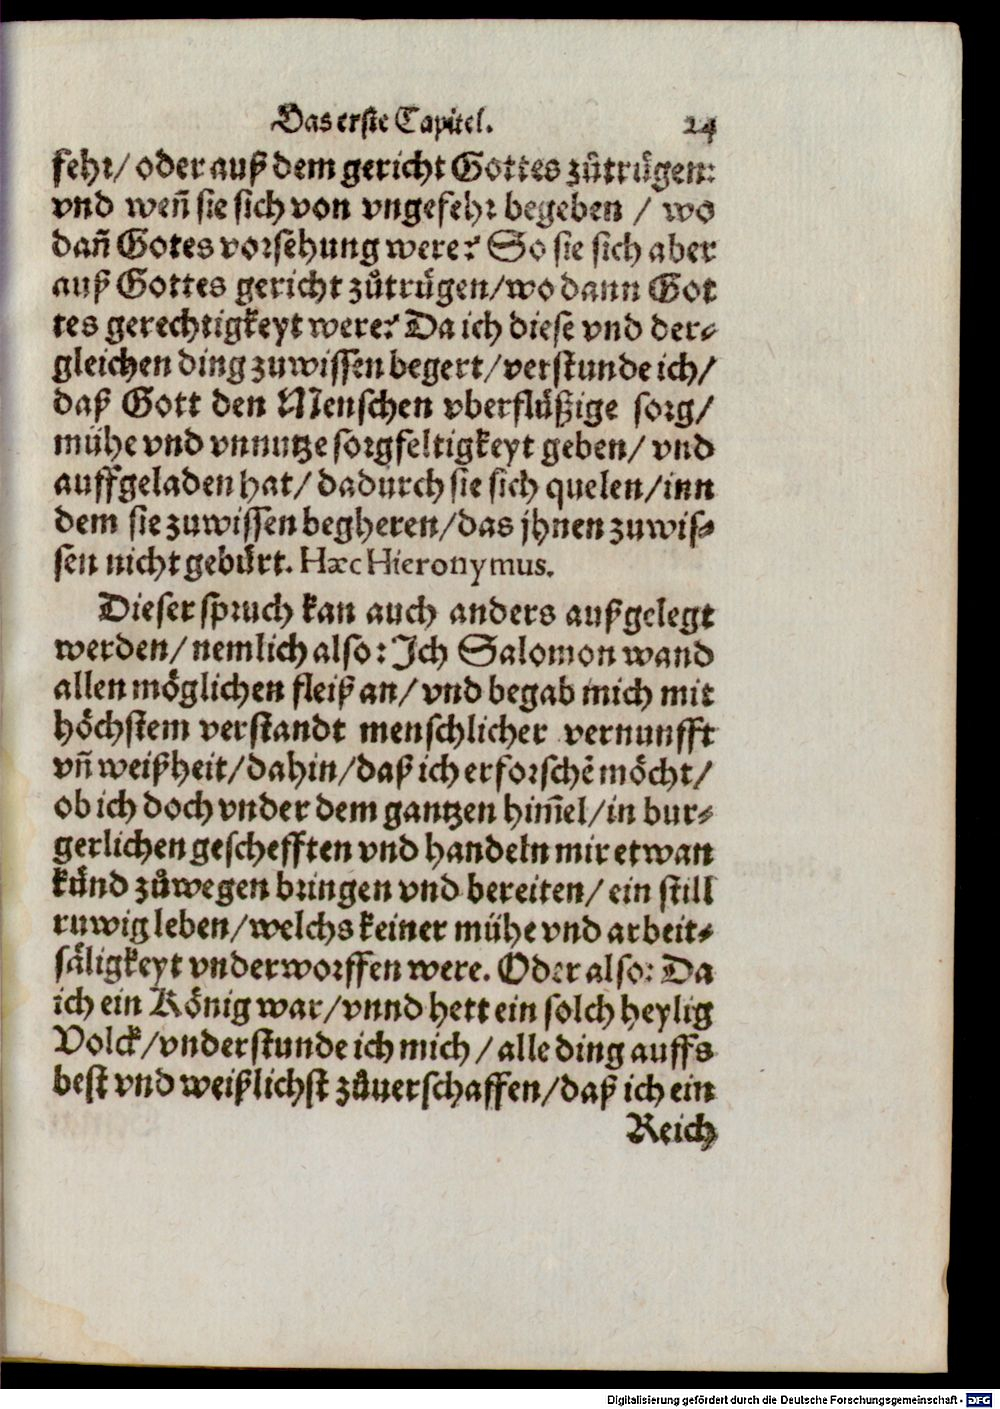 Das erste Capitel. 24
fehr/ oder auß dem gericht Gottes zůtrügen:
vnd wen̄ sie sich von vngefehr begeben / wo
dan̄ Gotes vorsehung were? So sie sich aber
auß Gottes gericht zůtrügen/wo dann Got
tes gerechtigkeyt were? Da ich diese vnd der⸗
gleichen ding zuwissen begert/verstunde ich/
daß Gott den Menschen vberflüßige sorg/
mühe vnd vnnutze sorgfeltigkeyt geben/ vnd
auffgeladen hat/ dadurch sie sich quelen/inn
dem sie zuwissen begheren/das jhnen zuwis⸗
sen nicht gebürt. Hæc Hieronymus.
Dieser spruch kan auch anders außgelegt
werden/ nemlich also: Ich Salomon wand
allen möglichen fleiß an/ vnd begab mich mit
höchstem verstandt menschlicher vernunfft
vn̄ weißheit/dahin/daß ich erforschē möcht/
ob ich doch vnder dem gantzen him̄el/in bur⸗
gerlichen geschefften vnd handeln mir etwan
künd zůwegen bringen vnd bereiten/ ein still
ruwig leben/welchs keiner mühe vnd arbeit⸗
säligkeyt vnderworffen were. Oder also: Da
ich ein König war/vnnd hett ein solch heylig
Volck/vnderstunde ich mich / alle ding auffs
best vnd weißlichst zůuerschaffen/daß ich ein
Reich
Digitalisierung gefördert durch die Deutsche Forschungsgemeinschaft - DFG